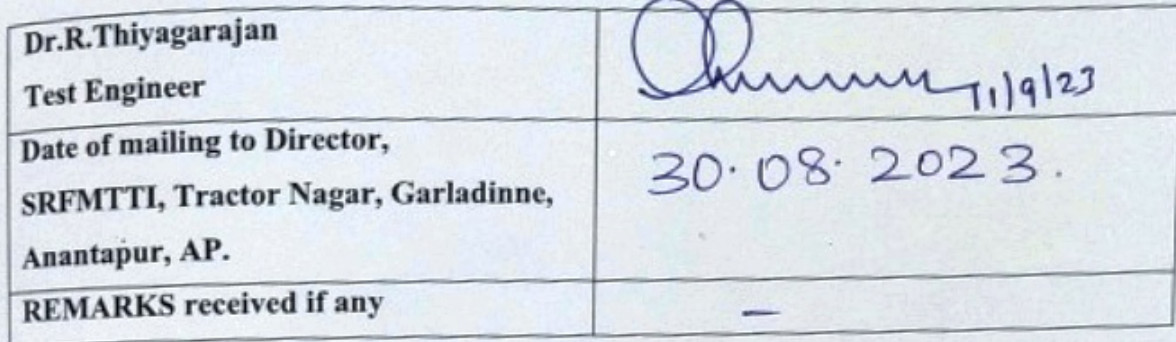 Dr.R.Thiyagarajan
Test Engineer
11/9/23
Date of mailing to Director,
SRFMTTI, Tractor Nagar, Garladinne,
Anantapur, AP.
30.08.2023.
REMARKS received if any
–